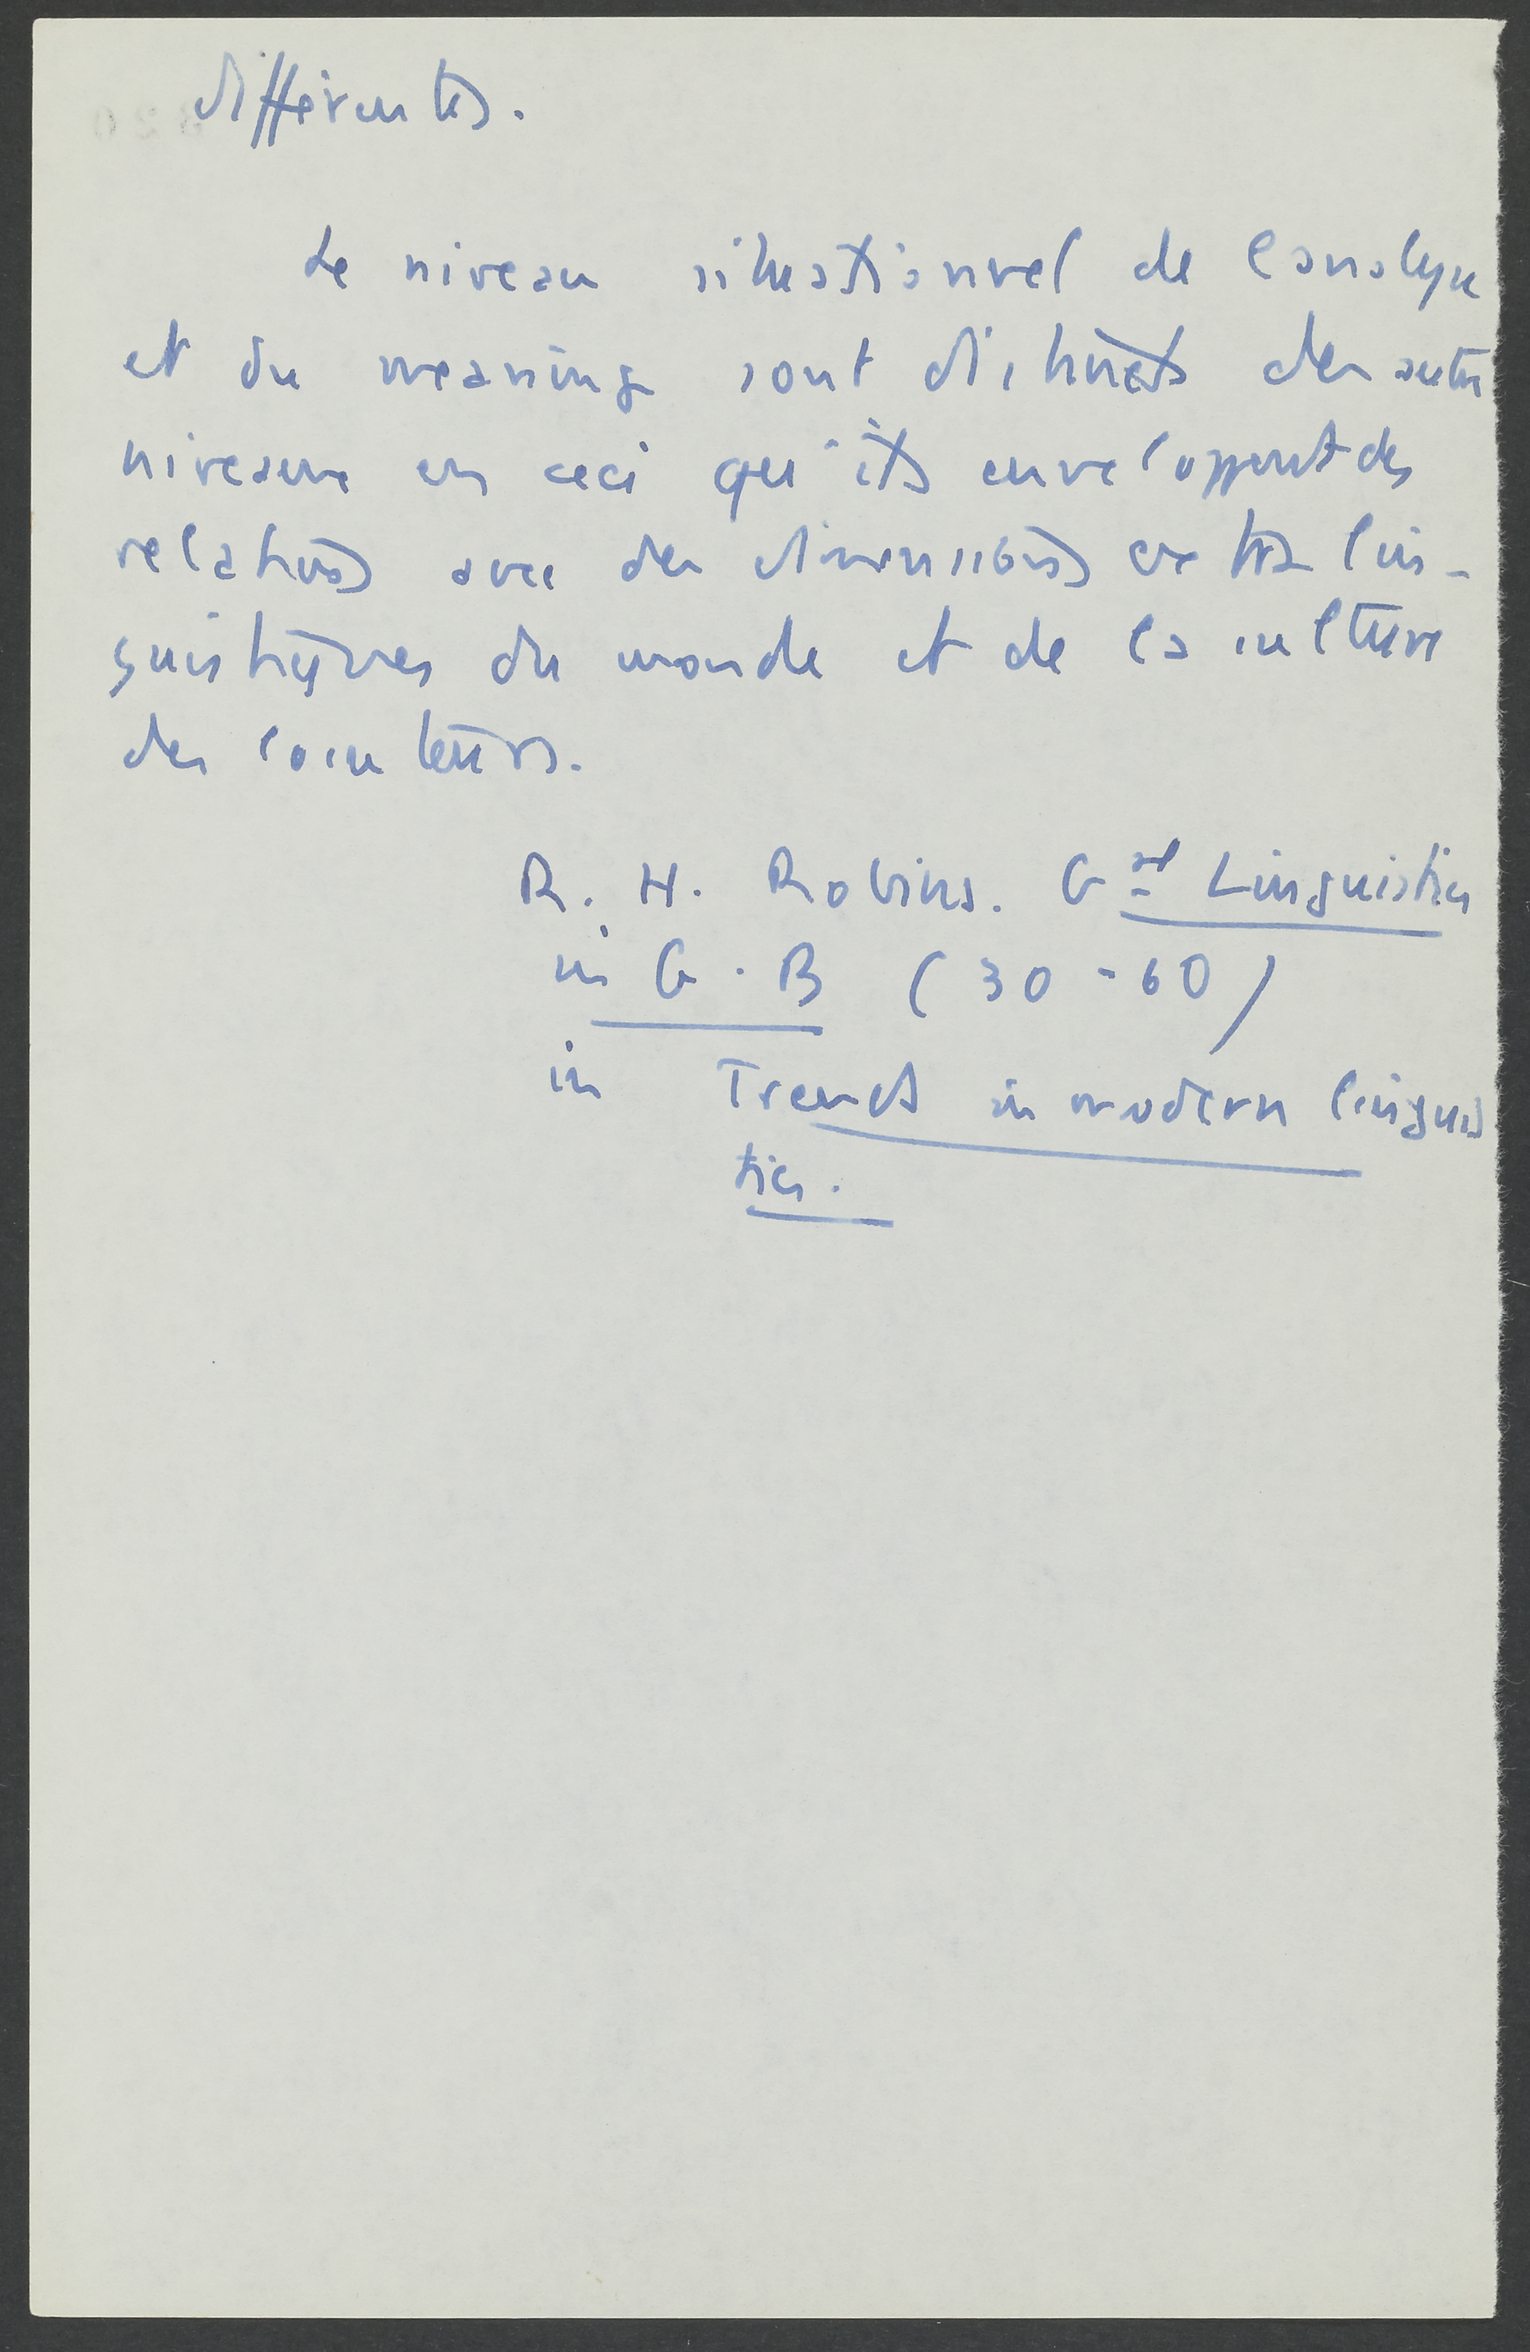 différentes.
Le niveau situationnel de l'analyse
et du meaning sont distincts des autres
niveaux en ceci qu'ils enveloppent des
relations avec des dimensions extra lin-
guistiques du monde et de la culture
des locuteurs.
R. H. Robins. Gal Linguistics
in G. B (30-60)
in Trends in modern linguis
tics.